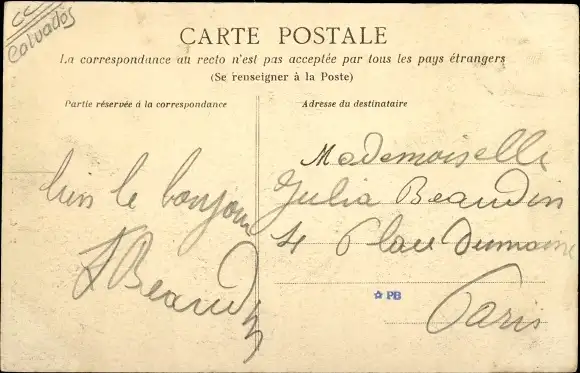 CC
Calvados
CARTE POSTALE
La correspondance au recto n'est pas acceptée par tous les pays étrangers
(Se renseigner à la Poste)
Partie réservée à la correspondance
Adresse du destinataire
le bonjour
Beaudin
Mademoiselle
Julia Beaudin
4 Place
PB
Paris